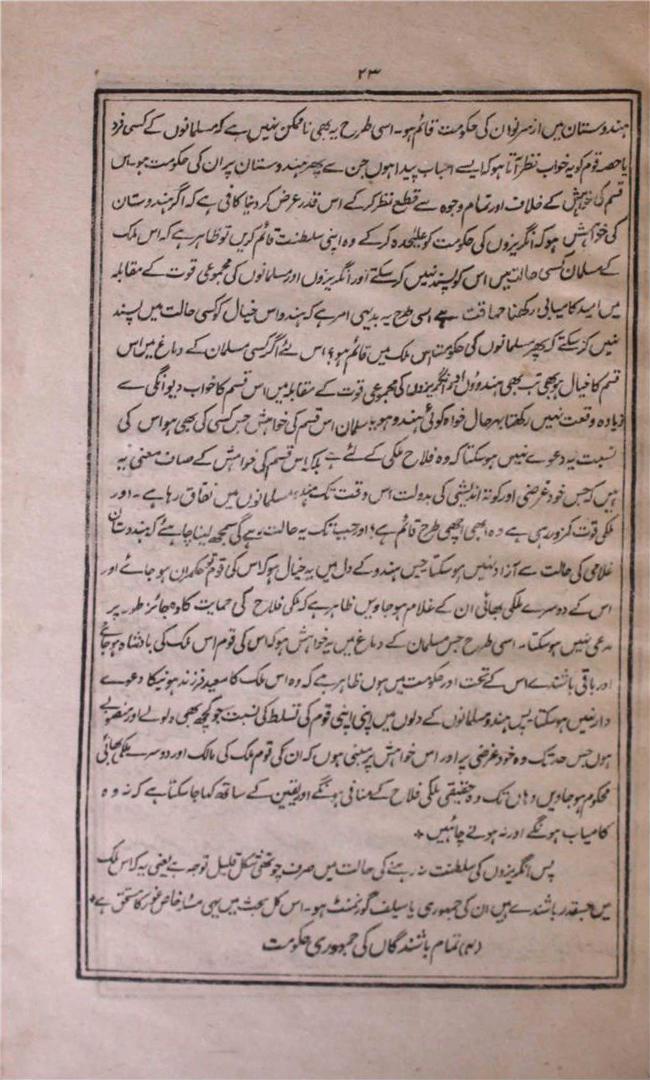 ۲۳
ہندوستان میں ازسرنو ان کی حکومت قائم ہو۔ اسی طرح یہ بھی ناممکن نہیں ہے کہ مسلمانوں کے کسی فرد
یا حصہ قوم کو یہ خواب نظر آتا ہو کہ ایسے اسباب پیدا ہوں جن سے پھر ہندوستان پر ان کی حکومت ہو۔ اس
قسم کی خواہش کے خلاف اور تمام وجوہ سے قطع نظر کرکے اس قدر عرض کر دینا کافی ہے کہ اگر ہندوستان
کی خواہش ہو کہ انگریزوں کی حکومت کو علیٰحدہ کرکے وہ اپنی سلطنت قائم کریں تو ظاہر ہے کہ اس ملک
کے مسلمان کسی حالت میں اس کو پسند نہیں کرسکتے اور انگریزوں اور مسلمانوں کی مجموعی قوت کے مقابلہ
میں امید کامیابی رکھنا حماقت ہے اسی طرح یہ بدیہی امر ہے کہ ہندو اس خیال کو کسی حالت میں پسند
نہیں کرسکتے کہ پھر مسلمانوں کی حکومت اس ملک میں قائم ہو؟ اس لئے اگر کسی مسلمان کے دماغ میں اس
قسم کا خیال ہو بھی تب بھی ہندوؤں اور انگریزوں کی مجموعی قوت کے مقابلہ میں اس قسم کا خواب دیوانگی سے
زیادہ وقعت نہیں رکھتا بہرحال خواہ کوئی ہندو ہو یا مسلمان اس قسم کی خواہش جس کسی کی بھی ہو اس کی
نسبت یہ دعوے نہیں ہوسکتا کہ وہ فلاح ملکی کے لئے ہے بلکہ اس قسم کی خواہش کے صاف معنی یہ
ہیں کہ جس خودغرضی اور کوتہ اندیشی کی بدولت اس وقت تک ہندو مسلمانوں میں نفاق رہا ہے۔ اور
ملکی قوت کمزور رہی ہے وہ ابھی اچھی طرح قائم ہے؛ اور جب تک یہ حالت رہے گی سمجھ لینا چاہئے کہ ہندوستان
غلامی کی حالت سے آزاد نہیں ہوسکتا جس ہندو کے دل میں یہ خیال ہو کہ اس کی قوم حکمران ہو جائے اور
اس کے دوسرے ملکی بھائی ان کے غلام ہوجاویں ظاہر ہے کہ ملکی فلاح کی حمایت کا وہ جائز طور پر
مدعی نہیں ہوسکتا۔ اسی طرح جس مسلمان کے دماغ میں یہ خواہش ہو کہ اس کی قوم اس ملک کی بادشاہ ہوجائے
اور باقی باشندے اس کے تحت اور حکومت میں ہوں ظاہر ہے کہ وہ اس ملک کا سعید فرزند ہونیکا دعوے
دار نہیں ہوسکتا پس ہندو مسلمانوں کے دلوں میں اپنی اپنی قوم کی تسلط کی نسبت جو کچھ بھی ولولے اور منصوبے
ہوں جس حد تک وہ خودغرضی پر اور اس خواہش پر مبنی ہوں کہ ان کی قوم ملک کی مالک اور دوسرے ملکی بھائی
محکوم ہوجاویں وہاں تک وہ حقیقی ملکی فلاح کے منافی ہونگے اور یقین کے ساتھ کہا جاسکتا ہے کہ نہ وہ
کامیاب ہونگے اور نہ ہونے چاہئیں *
پس انگریزوں کی سلطنت نہ رہنے کی حالت میں صرف چوتھی شکل قابل توجہ ہے یعنی یہ کہ اس ملک
میں جسقدر باشندے ہیں ان کی جمہوری یا سیلف گورنمنٹ ہو۔ اس کل بحث میں یہی مسئلہ خاص غور کا مستحق ہے *
(۴) تمام باشندگاں کی جمہوری حکومت